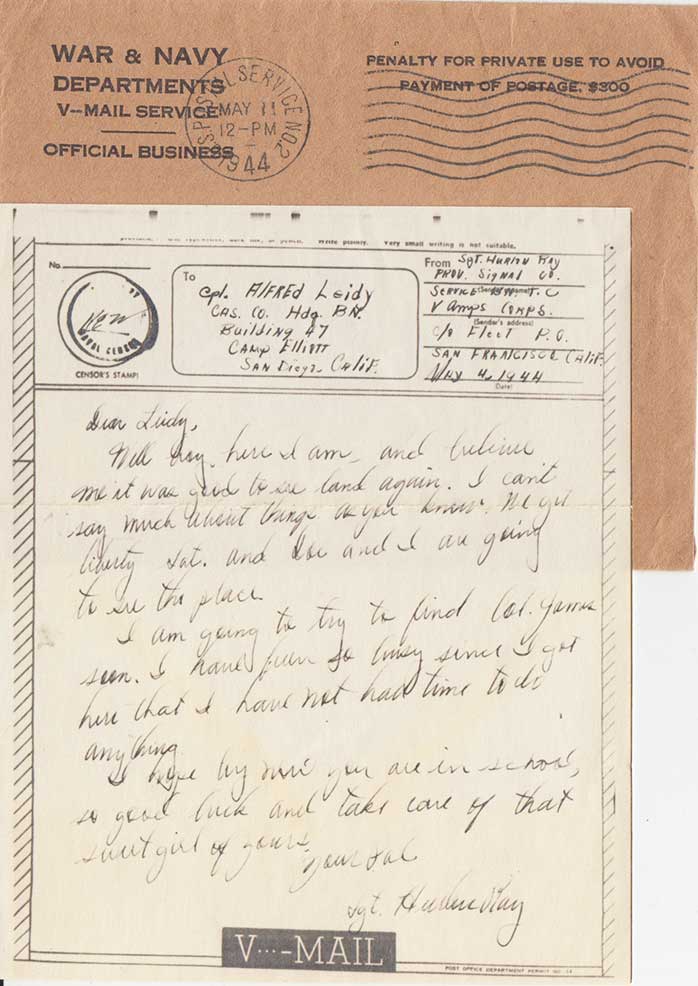 WAR & NAVY
DEPARTMENTS
V--MAIL SERVICE
OFFICIAL BUSINESS
U.S. POSTAL SERVICE NO. 2
MAY 11
12-PM
1944
PENALTY FOR PRIVATE USE TO AVOID
PAYMENT OF POSTAGE, $300
Write plainly. Very small writing is not suitable.
No.
NAVAL CENSOR
CENSOR'S STAMP
To
Cpl. Alfred Leidy
Cas. Co. Hdq. Bn.
Building 47
Camp Elliott
San Diego, Calif.
From
Sgt. Ray
Prov. Signal Co.
(Sender's name)
Service Bn. T.C
V Amps Corps.
(Sender's address)
c/o Fleet P.O.
San Francisco Calif.
May 4, 1944
(Date)
Dear Leidy,
Well boy, here I am, and believe
me it was good to see land again. I can't
say much about things as you know. We get
liberty Sat. and and I are going
to see the place.
I am going to try to find Col. James
soon. I have been so busy since I got
here that I have not had time to do
anything.
I hope by now you are in school,
so good luck and take care of that
sweet girl of yours.
Your Pal
Sgt. Ray
V···-MAIL
POST OFFICE DEPARTMENT PERMIT NO. 14